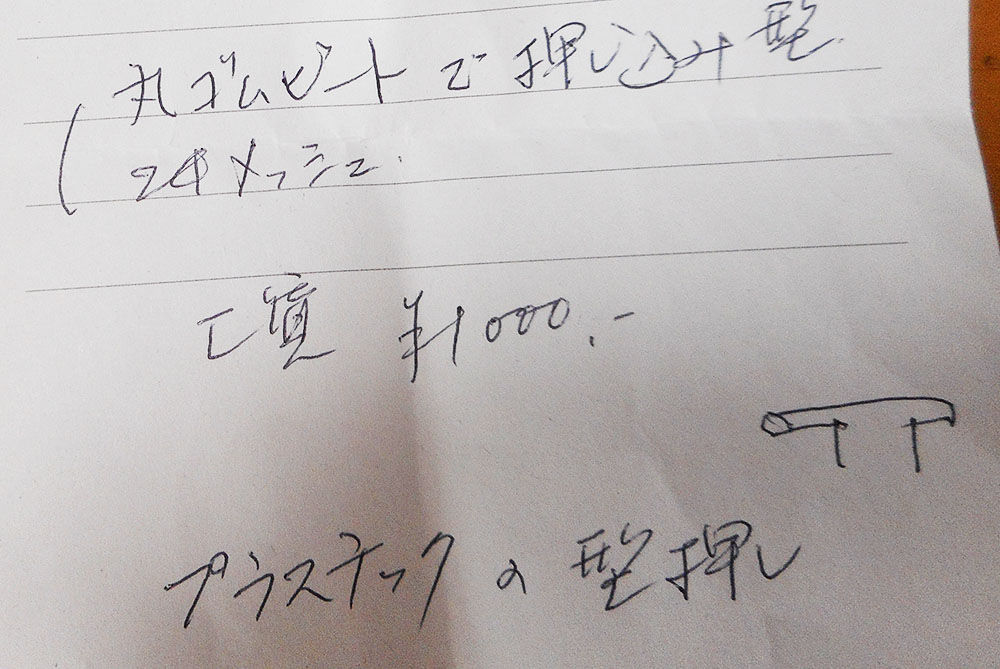 丸ゴムビートで押し込み型
24メッシュ
工賃 ¥1000.-
プラスチックの型押し